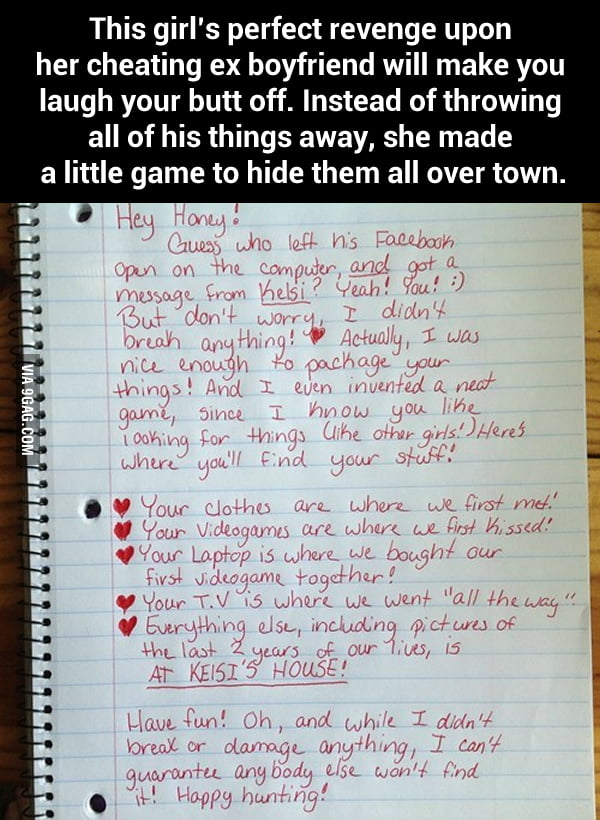 This girl's perfect revenge upon
her cheating ex boyfriend will make you
laugh your butt off. Instead of throwing
all of his things away, she made
a little game to hide them all over town.
Hey Honey!
Guess who left his Facebook
open on the computer, and got a
message from Kelsi? Yeah! You! :)
But don't worry, I didn't
break anything! ♥ Actually, I was
nice enough to package your
things! And I even invented a neat
game, since I know you like
looking for things (like other girls!) Here's
where you'll find your stuff!
♥ Your clothes are where we first met!
♥ Your Videogames are where we first kissed!
♥ Your Laptop is where we bought our
first videogame together!
♥ Your T.V is where we went "all the way"!
♥ Everything else, including pictures of
the last 2 years of our lives, is
AT KElSI'S HOUSE!
Have fun! Oh, and while I didn't
break or damage anything, I can't
guarantee anybody else won't find
it! Happy hunting!
VIA 9GAG.COM